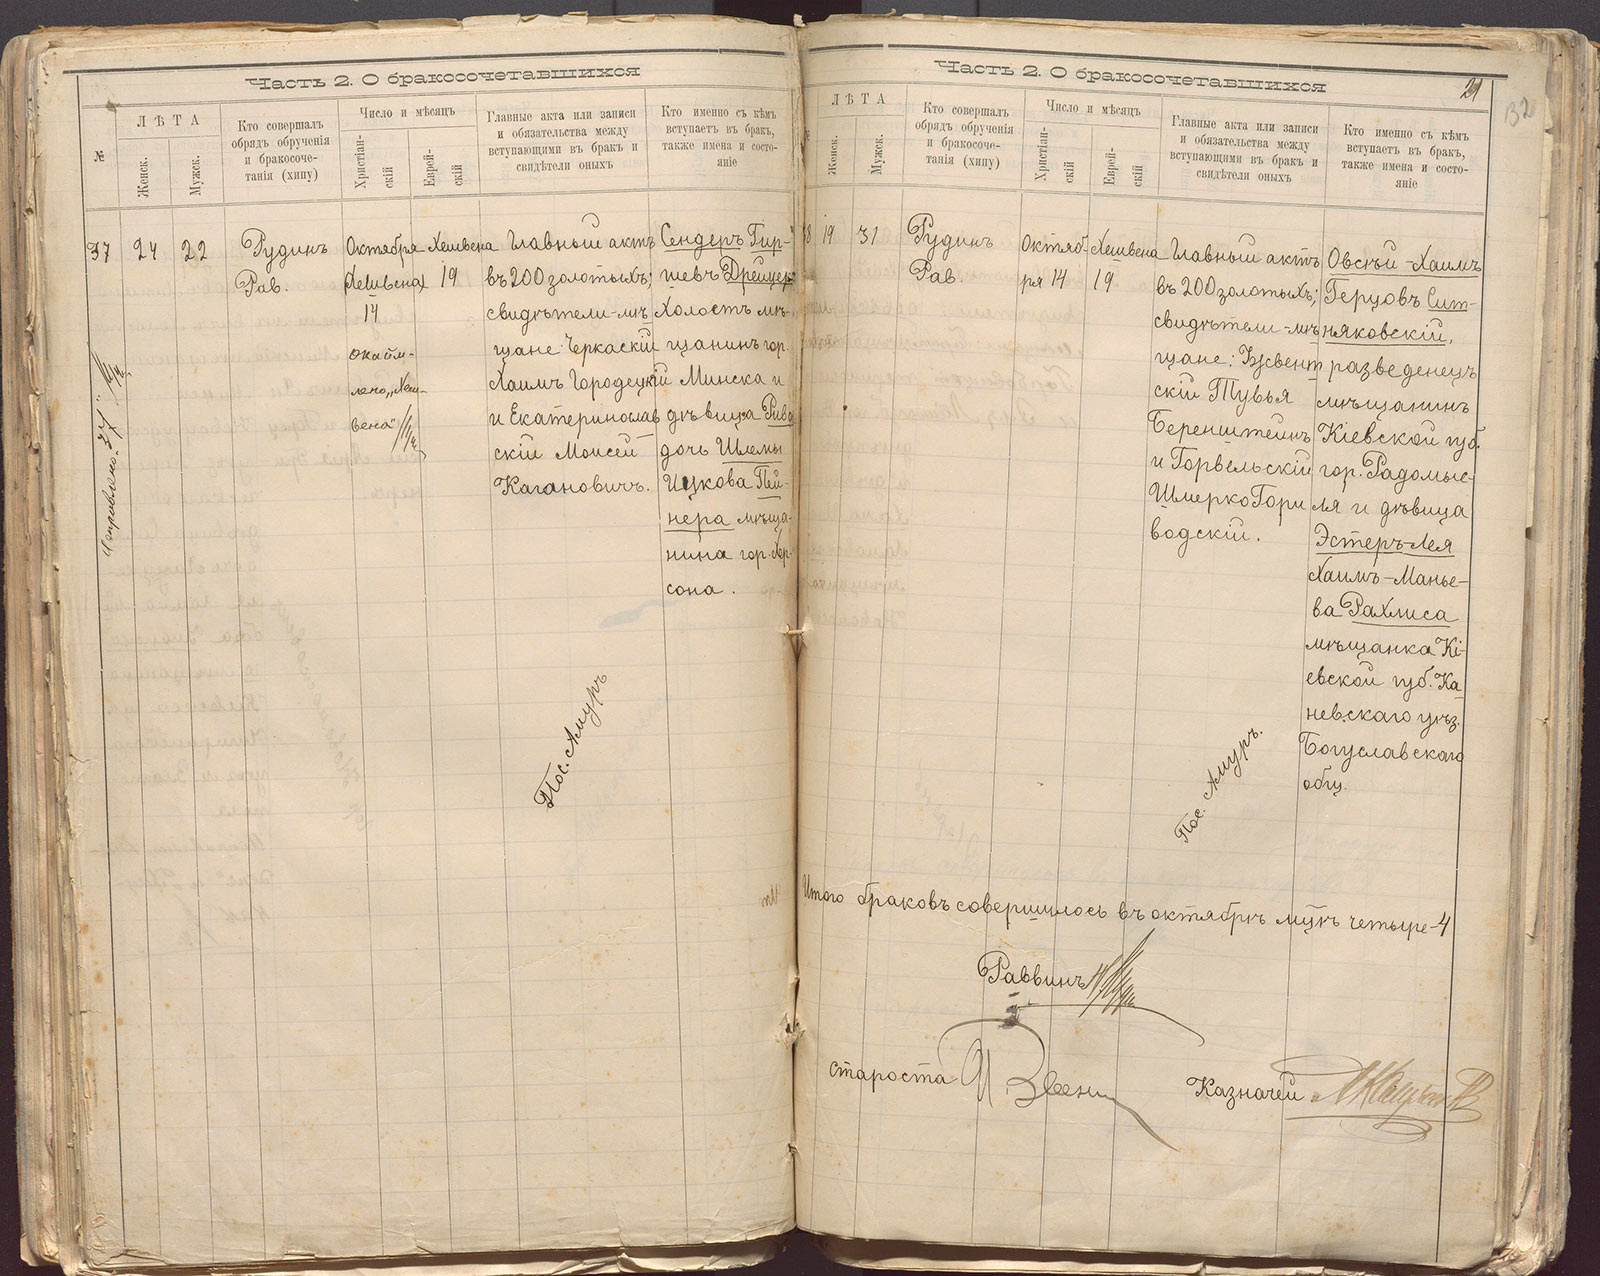 Часть 2. О бракосочетавшихся
№
ЛѢТА
Женск.
Мужск.
Кто совершалъ
обрядъ обрученія
и бракосоче-
танія (хипу)
Число и мѣсяцъ
Христіан-
скій
Еврей-
скій
Главные акта или записи
и обязательства между
вступающими въ бракъ и
свидѣтели оныхъ
Кто именно съ кѣмъ
вступаетъ въ бракъ,
также имена и состо-
яніе
37
24
22
Рудинъ
Рав.
Октября
Хешвена
14
окайм-
лено „Хеш-
вена"
Хешвена
19
Главный актъ
въ 200 золотыхъ;
свидѣтели-мѣ-
щане: Черкаскій
Хаимъ Городецкій
и Екатеринослав
скій Моисей
Кагановичъ.
Сендеръ Гир-
шевъ Дрейцеръ
холостъ мѣ-
щанинъ гор.
Минска и
дѣвица Рива
дочь Шлемы
Ицкова Пей-
нера мѣща-
нина гор. Хер-
сона.
Исправлено „37"
Пос. Амуръ
Часть 2. О бракосочетавшихся
21
132
№
ЛѢТА
Женск.
Мужск.
Кто совершалъ
обрядъ обрученія
и бракосоче-
танія (хипу)
Число и мѣсяцъ
Христіан-
скій
Еврей-
скій
Главные акта или записи
и обязательства между
вступающими въ бракъ и
свидѣтели оныхъ
Кто именно съ кѣмъ
вступаетъ въ бракъ,
также имена и состо-
яніе
38
19
31
Рудинъ
Рав.
Октяб-
ря 14
Хешвена
19.
Главный актъ
въ 200 золотыхъ;
свидѣтели-мѣ-
щане:
скій Тувья
Беренштейнъ
и Горвельскій
Шмерко Гори
водскій.
Овсѣй-Хаимъ
Герцовъ Сит-
няковскій,
разведенецъ
мѣщанинъ
Кіевской губ.
гор. Радомыс-
ля и дѣвица
Эстеръ-Лея
Хаимъ-Манье-
ва Рахлиса
мѣщанка Кі-
евской губ. Ка
невскаго уѣз.
Богуславскаго
общ.
Пос. Амуръ.
Итого браковъ совершилось въ октябрѣ м-цѣ четыре-4
Раввинъ
староста
Казначей